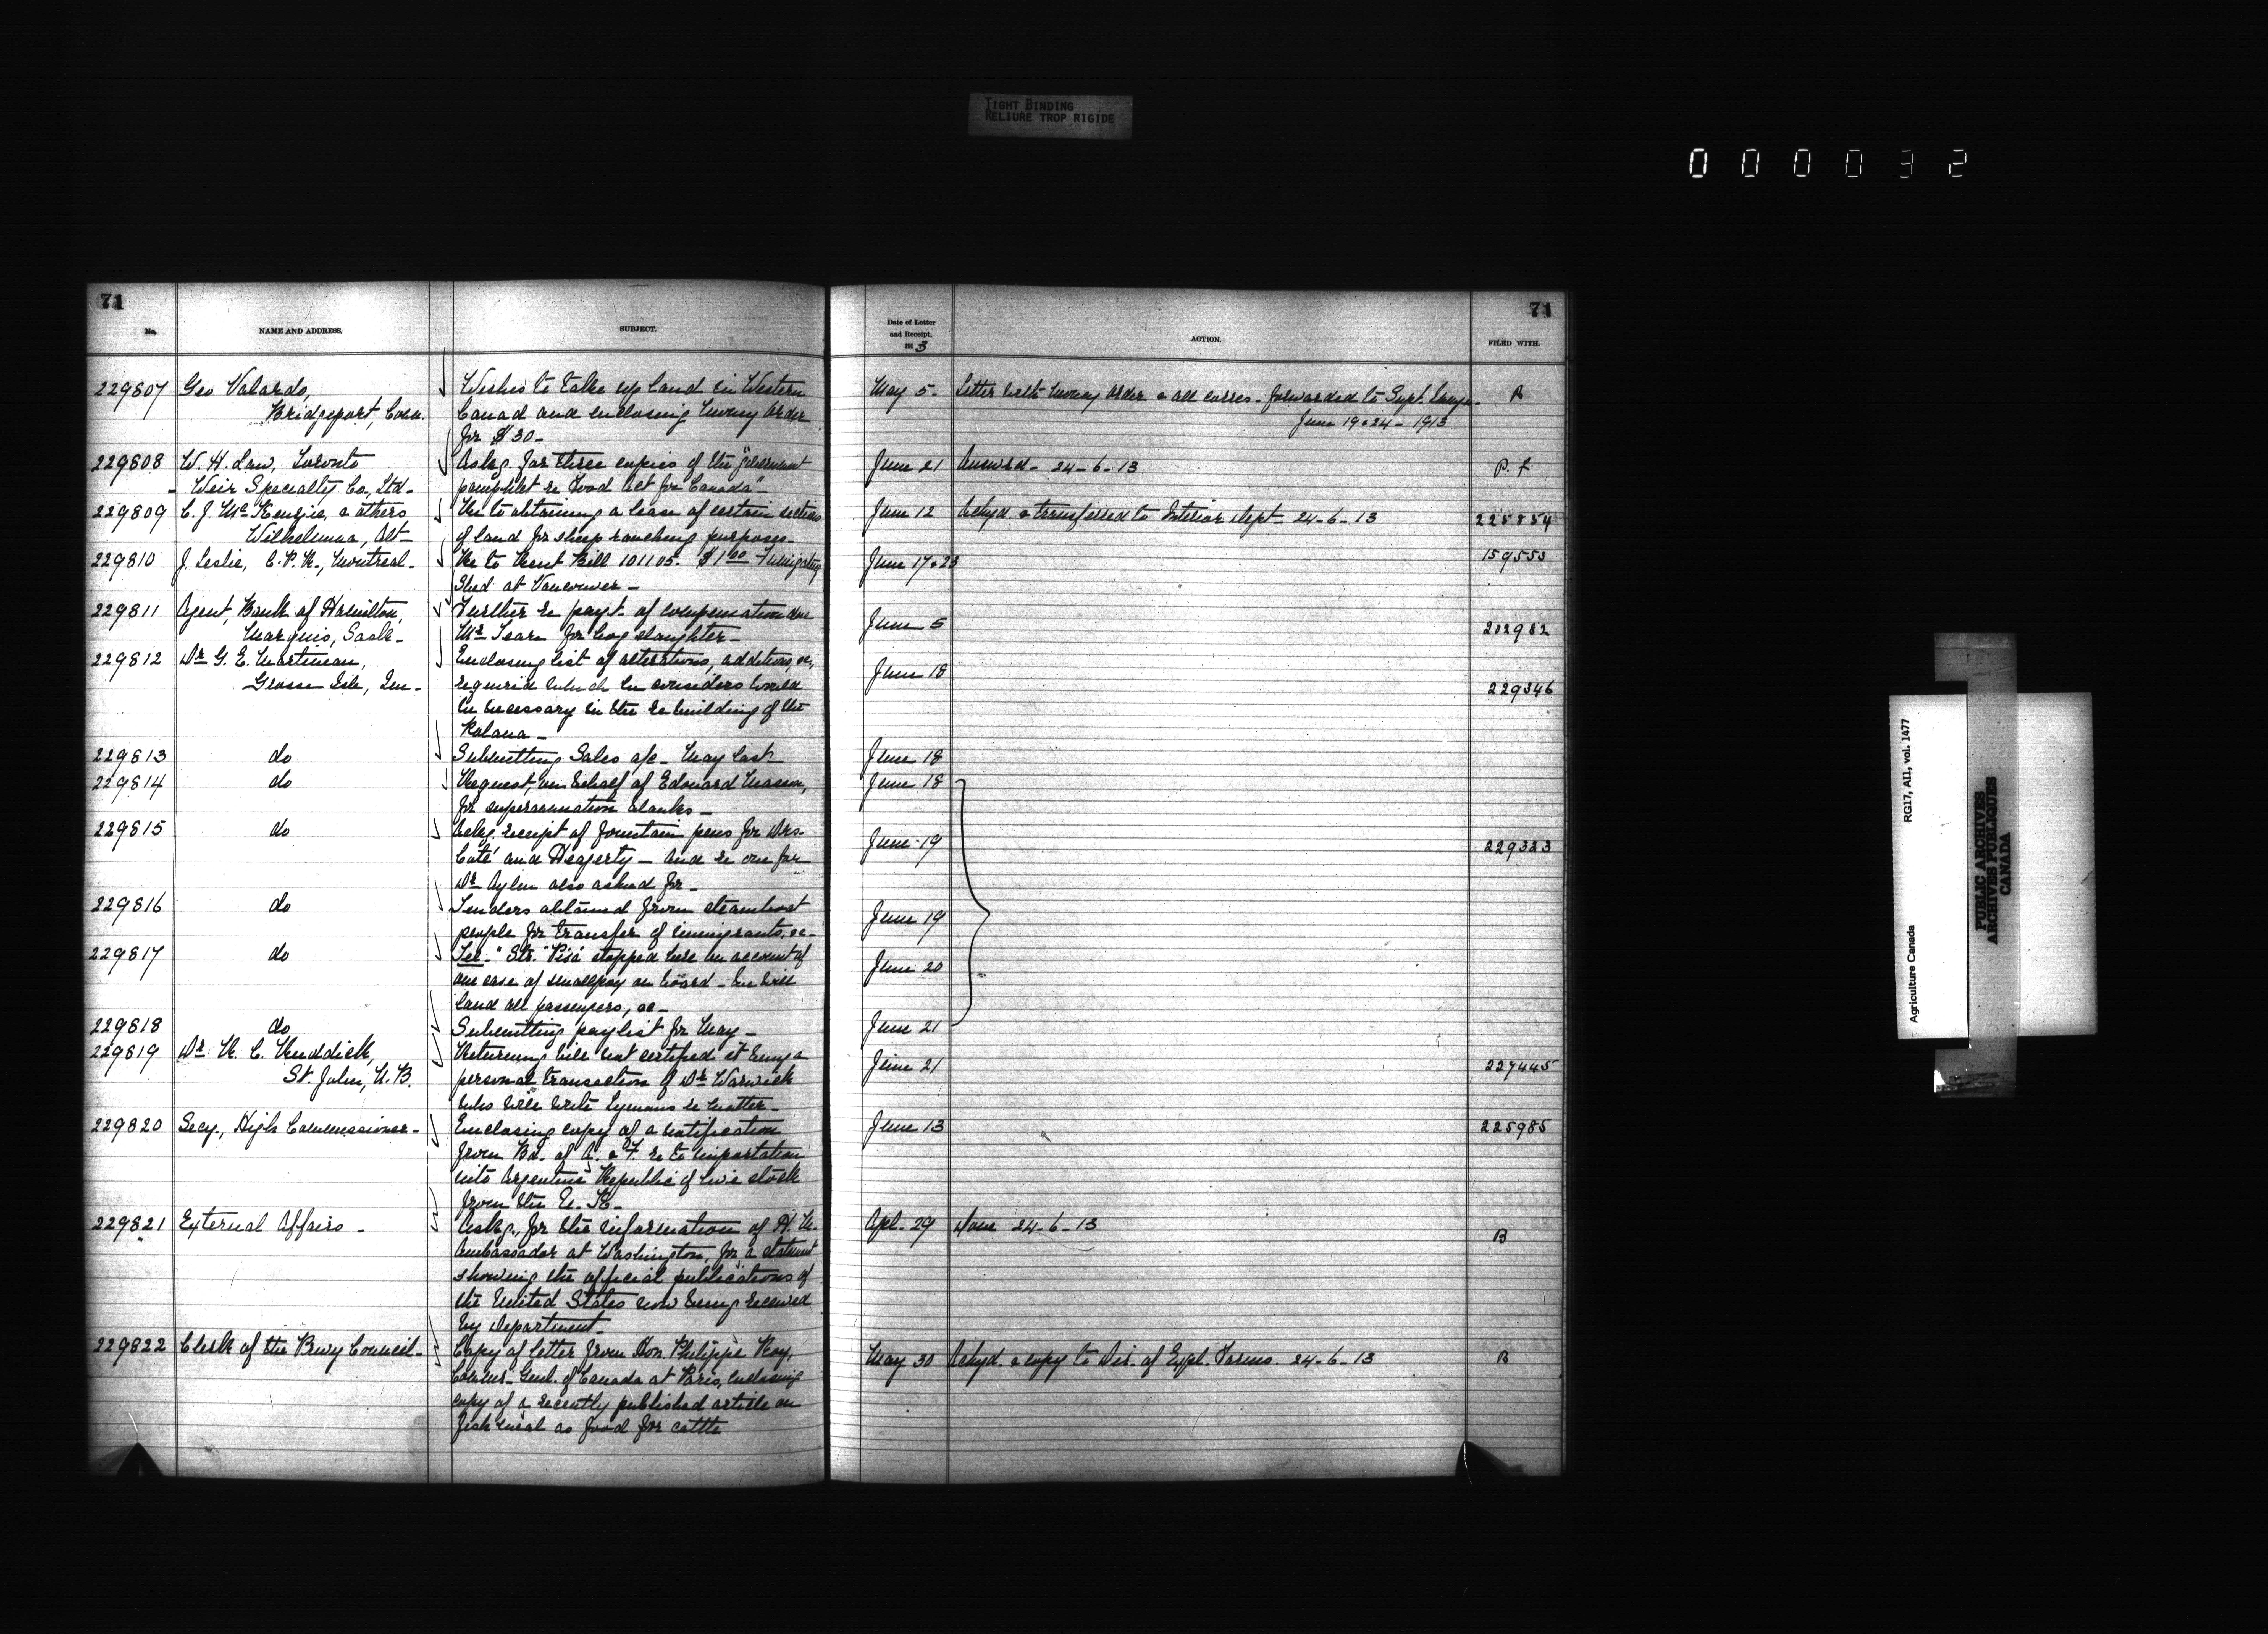 TIGHT BINDING
RELIURE TROP RIGIDE
000032
71
No.
NAME AND ADDRESS.
SUBJECT.
229807 Geo Valardo,
Bridgeport, Conn.
Wishes to take up land in Western
Canad and enclosing money order
for $30-
229808 W. H. Law, Toronto
- Weir Specialty Co., Ltd-
Askg. for three copies of the "Government
pamphlet re Food Act for Canada"-
229809 C. J. McKenzie, & others
Wilhelmina, Alt-
Re to obtaining a lease of certain sections
of land for sheep ranching purposes-
229810 J. Leslie, C.P.R., Montreal-
Re to Rent Bill 101105- $1.00 - Fumigating
Shed at Vancouver-
229811 Agent, Bank of Hamilton,
Marquis, Sask-
Further re payt. of compensation due
Mr for hog slaughter-
229812 Dr G. E. Martineau,
Grosse Isle, Que-
Enclosing list of alterations, additions, &c,
required which he considers would
be necessary in the rebuilding of the
Kalana-
229813 do
Submitting Sales a/c- May last
229814 do
Request, on behalf of Edouard Masson,
for superannuation blanks-
229815 do
Ackg. receipt of fountain pens for Drs.
Coté and Heagerty - and re one for
Dr Aylen also asked for-
229816 do
Tenders obtained from steamboat
people for transfer of immigrants, &c-
229817 do
Tel- "Str. "Pisa" stopped here on account of
one case of smallpox on board - We will
land all passengers, &c-
229818 do
Submitting paylist for May-
229819 Dr R. C. Ruddick,
St. John, N.B.
Returning bill not certified it being a
personal transaction of Dr Warwick
who will write Lymans re matter-
229820 Secy., High Commissioner-
Enclosing copy of a notification
from Bd. of A. & F. re to importation
into Argentine Republic of live stock
from the U. K-
229821 External Affairs-
Askg., for the information of H. M.
Ambassador at Washington, for a statement
showing the official publications of
the United States now being received
by Department-
229822 Clerk of the Privy Council-
Copy of letter from Hon. Philippe Roy,
Commr- Genl. of Canada at Paris, enclosing
copy of a recently published article on
fish meal as food for cattle
71
Date of Letter
and Receipt,
1913
ACTION.
FILED WITH.
May 5- Letter with money order & all corres- forwarded to Supt. Immgn- B
June 19 & 24 - 1913
June 21 Answrd- 24-6-13 P. F
June 12 Ackgd. & transferred to Interior Dept- 24-6-13 225854
June 17 & 23 159553
June 5 202982
June 18 229346
June 18
June 18
June 19 229323
June 19
June 20
June 21
June 21 227445
June 13 225985
Apl- 29 Done 24-6-13 B
May 30 Ackgd. & copy to Dir. of Expl. Farms. 24-6-13 B
Agriculture Canada RG17, AII, vol. 1477
PUBLIC ARCHIVES
ARCHIVES PUBLIQUES
CANADA